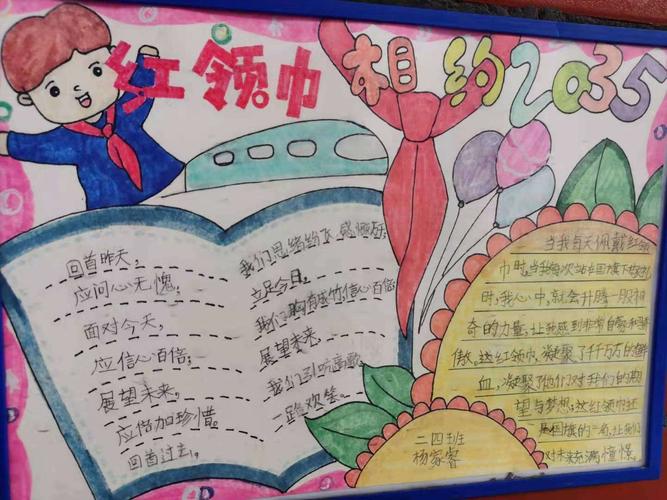 红领巾 相约2035
回首昨天,
应问心无愧,
面对今天,
应信心百倍;
展望未来,
应倍加珍惜。
回首过去,
我们思绪纷飞,感慨万
立足今日,
我们胸有成竹,信心百倍
展望未来,
我们引吭高歌
一路欢笑。
当我每天佩戴红领
巾时,当我每次站在国旗下敬礼
时,我心中,就会升腾一股神
奇的力量,让我感到非常自豪和骄
傲,这红领巾,凝聚了千千万万的
血,凝聚了他们对我们的期
望与梦想;这红领巾还
是国旗的一角,让我们
对未来充满憧憬。
二四班
杨家睿